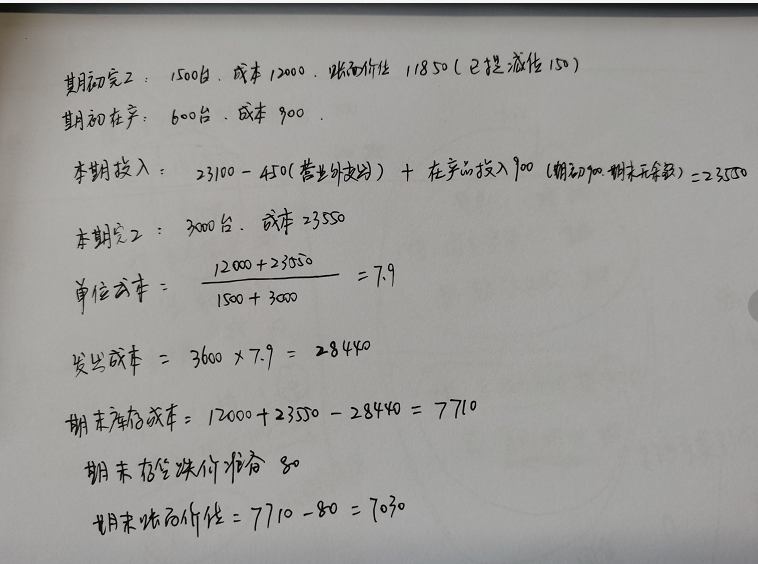 期初完工: 1500台. 成本12000. 账面价值 11850(已提减值150)
期初在产: 600台. 成本900.
本期投入: 23100-450(营业外支出) + 在产品投入900 (期初900.期末无余额)=23550
本期完工: 3000台. 成本23550
单位成本= 12000+23550 / 1500+3000 =7.9
发出成本 = 3600×7.9= 28440
期末库存成本= 12000+23550-28440=7710
期末存货跌价准备 80
期末账面价值=7710-80=7030